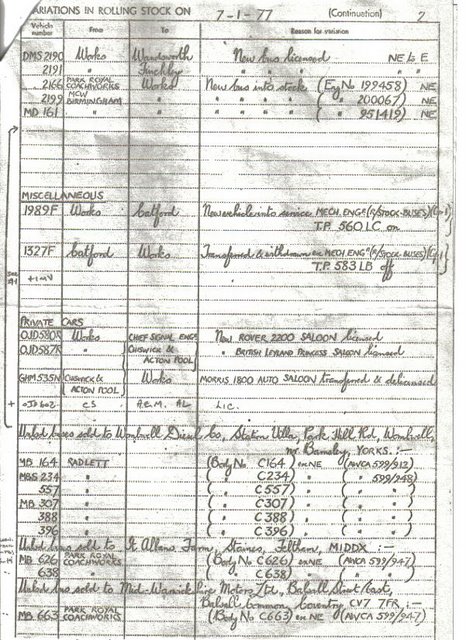 VARIATIONS IN ROLLING STOCK ON 7-1-77 (Continuation) 2
Vehicle number From To Reason for variation
DMS 2190 Works Wandsworth New bus licensed NE to E
2191 " Finchley " " "
2166 PARK ROYAL COACHWORKS Works New bus into stock (Eng No 199458) NE
2199 MCW BIRMINGHAM " " " " " ( " 200067) NE
MD 161 " " " " " ( " 951419) NE
MISCELLANEOUS
1989F Works Catford New vehicle into service MECH. ENGR (R/STOCK-BUSES)
T.P. 560 LC on
1327F Catford Works Transferred & withdrawn ex MECH ENGR (R/STOCK-BUSES)
T.P. 583 LB off
PRIVATE CARS
OJD580R Works CHIEF SIGNAL ENGR New ROVER 2200 SALOON licensed
OJD587R " CHISWICK & ACTON POOL " BRITISH LEYLAND PRINCESS SALOON licensed
GHM535N CHISWICK & ACTON POOL Works MORRIS 1800 AUTO SALOON transferred & delicensed
CS LIC.
Unlicd buses sold to Wombwell Diesels Co, Station Villa, Park Hill Rd, Wombwell,
nr Barnsley, YORKS. :-
MB 164 RADLETT (Body No C164) ex NE (AWCA 599/912)
MBS 234 " ( " C234) " ( " 599/948)
557 " ( " C557) " ( " " )
MB 307 " ( " C307) " ( " " )
388 " ( " C388) " ( " " )
396 " ( " C396) " ( " " )
Unlicd buses sold to Farm, Staines, Feltham, MIDDX :-
MB 626 PARK ROYAL COACHWORKS (Body No C626) ex NE (AWCA 599/947)
638 " ( " C638) " ( " " )
Unlicd bus sold to Mid-Warwickshire Motors Ltd, Balsall Street East,
Balsall Common, Coventry CV7 7FR, :-
MB 663 PARK ROYAL COACHWORKS (Body No C663) ex NE (AWCA 599/947)